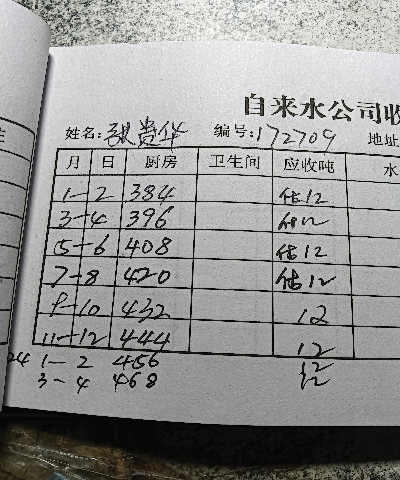 自来水公司收
姓名: 编号:172709 地址
月 日 厨房 卫生间 应收吨 水
1-2 384 估12
3-4 396 估12
5-6 408 估12
7-8 420 估12
9-10 432 12
11-12 444 12
24 1-2 456 12
3-4 468 12